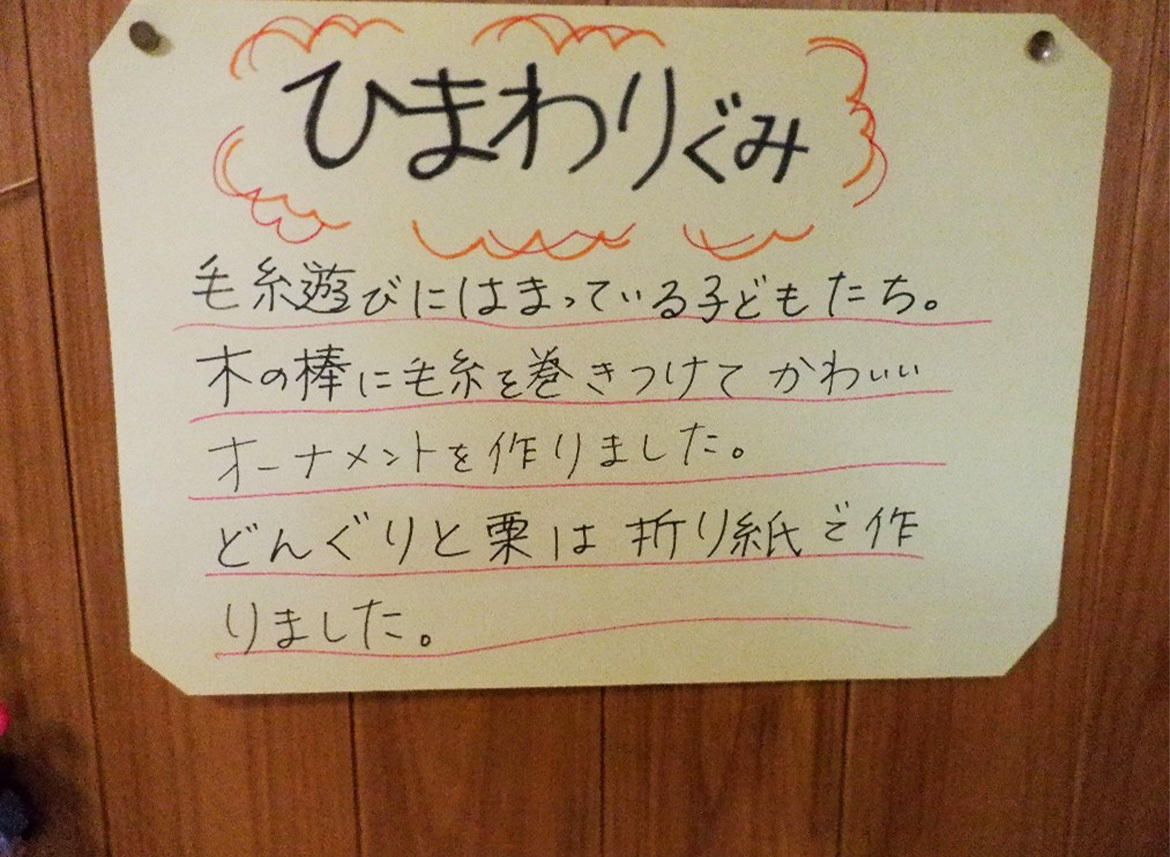 ひまわりぐみ
毛糸遊びにはまっている子どもたち。
木の棒に毛糸を巻きつけてかわいい
オーナメントを作りました。
どんぐりと栗は折り紙で作
りました。